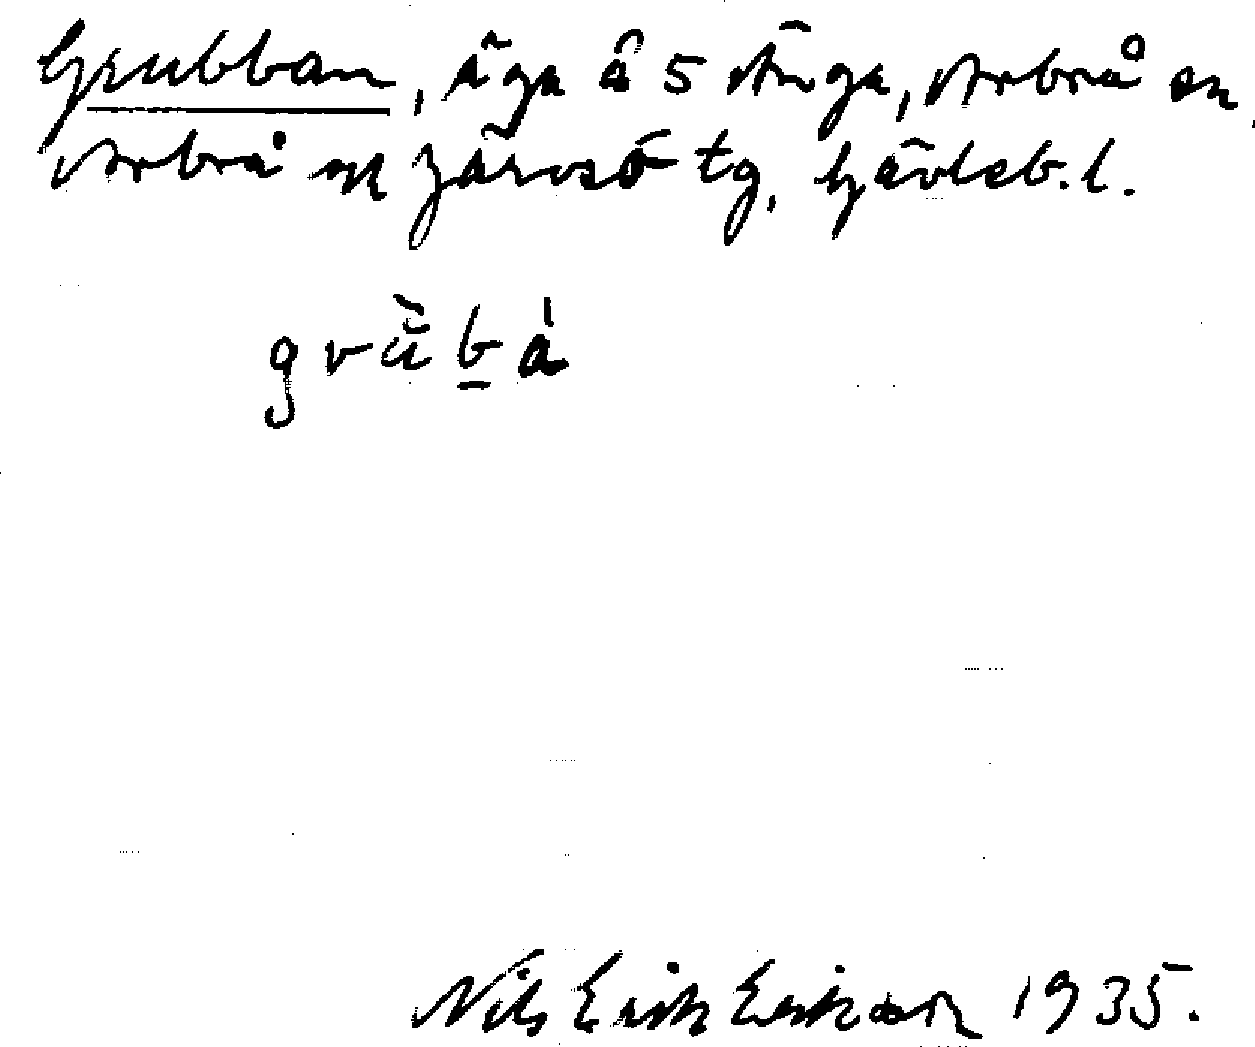 Grubban, äga å 5 Änga, Arbrå sn,
Arbrå och Järvsö tg, Gävleb. l.
gru̇̀bȧ
Nils Erik Eriksson 1935.